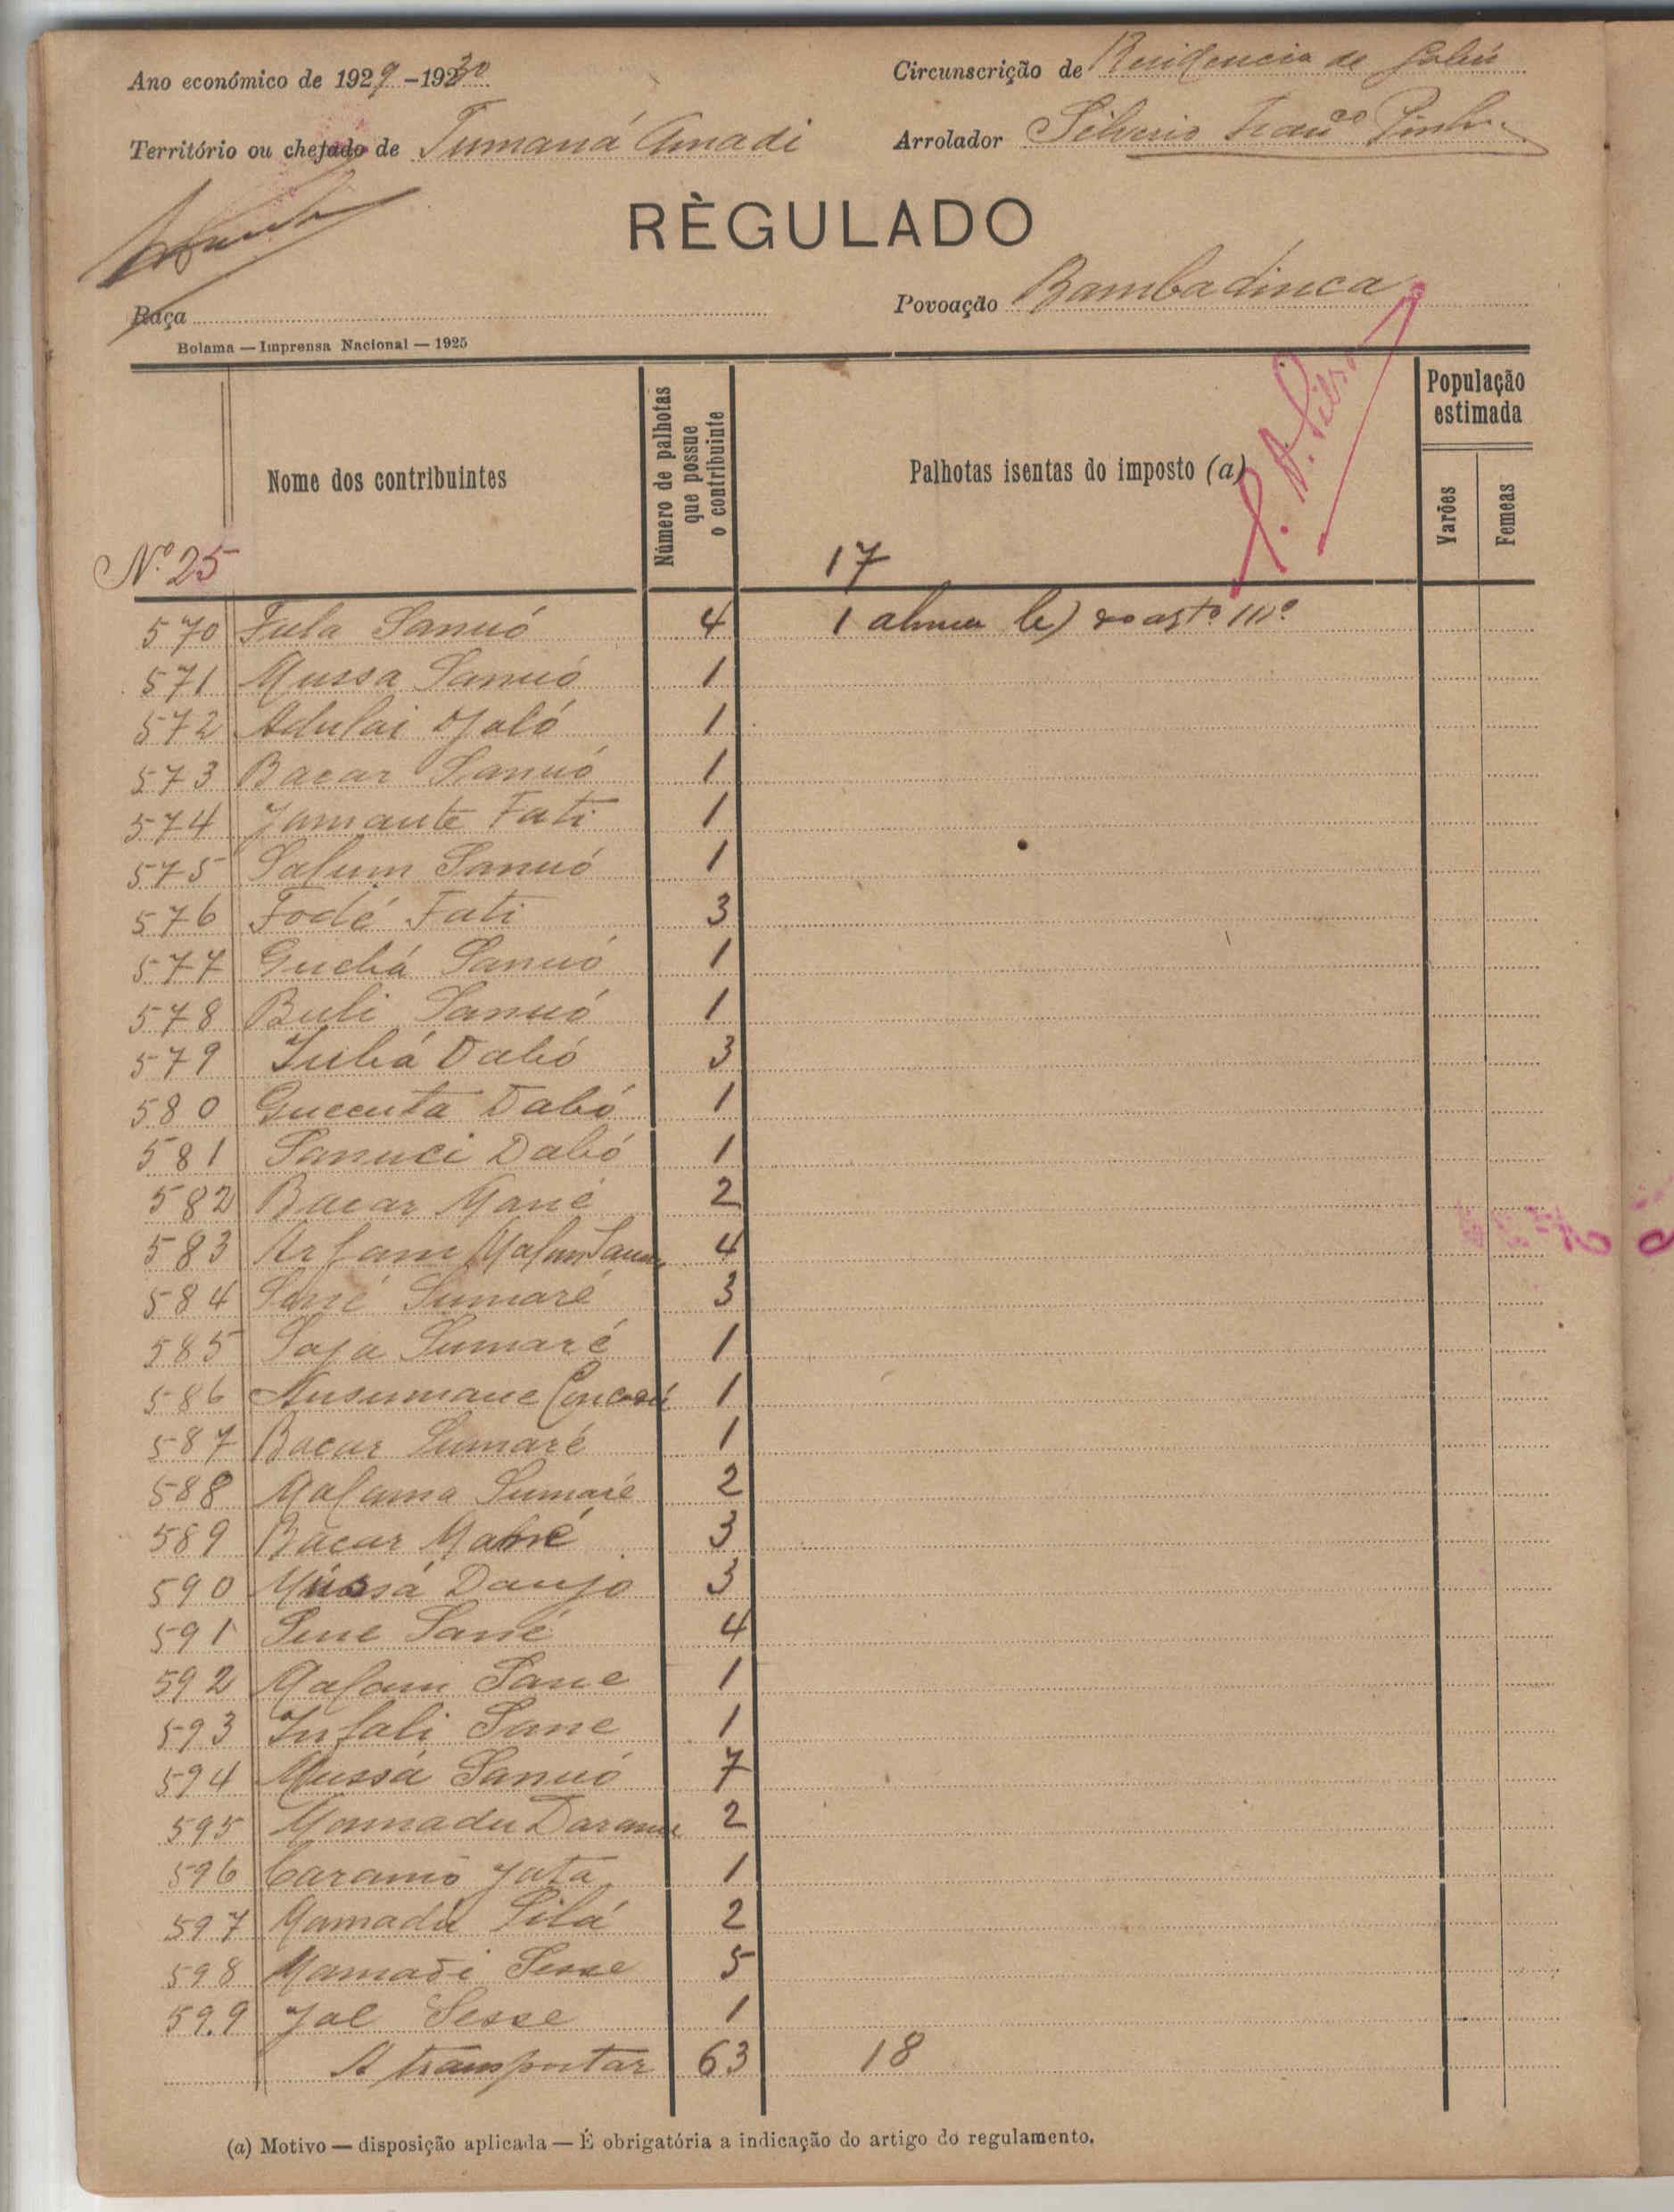 Ano económico de 1929-1930
Circunscrição de Residencia de Gabú
Território ou chefado de Tumaná Amadi
Arrolador Silverio Franco Pinho
RÈGULADO
Raça
Povoação Bambadinca
Bolama — Imprensa Nacional — 1925
Nome dos contribuintes
Número de palhotas que possue o contribuinte
Palhotas isentas do imposto (a)
População estimada
Varões
Femeas
Nº 25
17
570 Fula Sanuó 4 1
571 Mussa Sanuó 1
572 Adulai Djaló 1
573 Bacar Sanuó 1
574 Jamante Fati 1
575 Salum Sanuó 1
576 Fodé Fati 3
577 Guebá Sanuó 1
578 Buli Sanuó 1
579 Jubá Dabó 3
580 Queeuta Dabó 1
581 Sanuci Dabó 1
582 Bacar Mané 2
583 Arfam Malam 4
584 Sané Sumaré 3
585 Saja Sumaré 1
586 Ansumane 1
587 Bacar Sumaré 1
588 Malama Sumaré 2
589 Bacar Mané 3
590 Mussá Danjo 3
591 Sene Sané 4
592 Malam Sane 1
593 Infali Sane 1
594 Mussá Sanuó 7
595 Mamadu Darame 2
596 Caramó Jata 1
597 Mamadu Silá 2
598 Mamadi Sesse 5
599 Jal Sesse 1
A transportar 63 18
(a) Motivo — disposição aplicada — É obrigatória a indicação do artigo do regulamento.